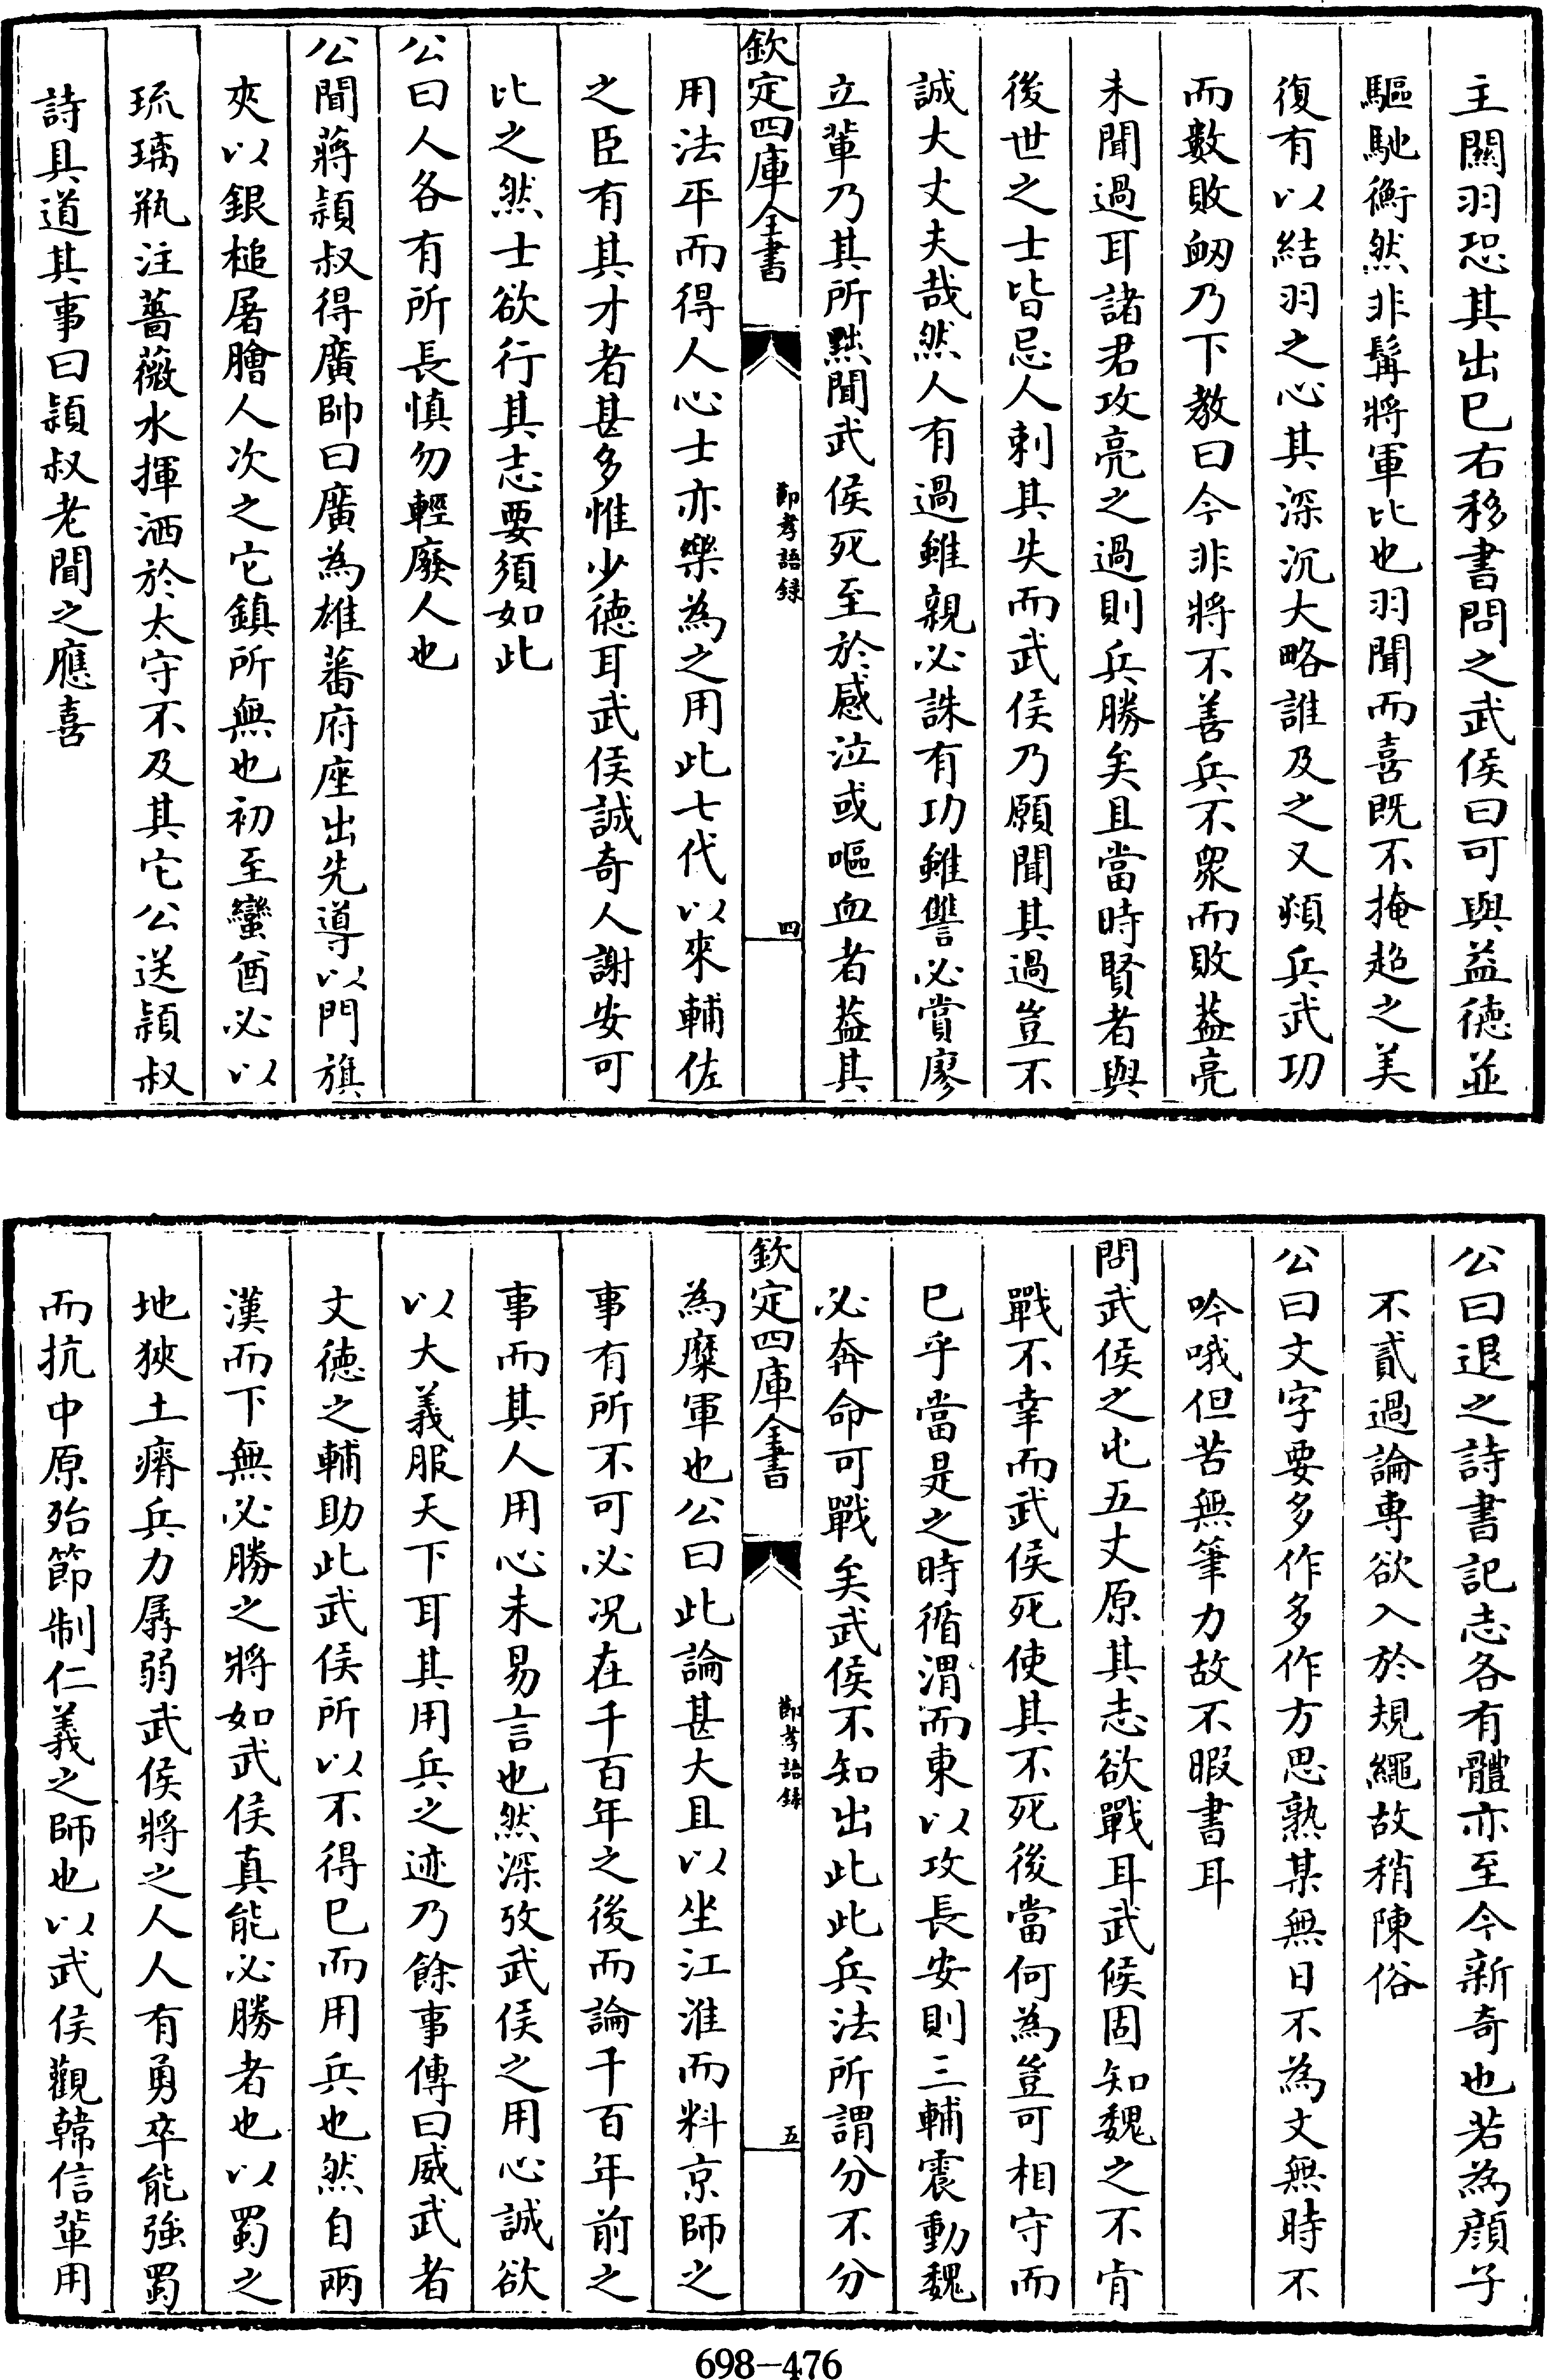 主關羽恐其出已右移書問之武侯曰可與益徳並
驅馳衡然非髯將軍比也羽聞而喜既不掩超之美
復有以結羽之心其深沉大略誰及之又頻兵武功
而數敗衂乃下教曰今非將不善兵不衆而敗葢亮
未聞過耳諸君攻亮之過則兵勝矣且當時賢者與
後世之士皆忌人刺其失而武侯乃願聞其過豈不
誠大丈夫哉然人有過雖親必誅有功雖讐必賞廖
立輩乃其所黜聞武侯死至於感泣或嘔血者葢其
欽定四庫全書
節孝語録
四
用法平而得人心士亦樂為之用此七代以來輔佐
之臣有其才者甚多惟少徳耳武侯誠奇人謝安可
比之然士欲行其志要須如此
公曰人各有所長慎勿輕廢人也
公聞蔣頴叔得廣帥曰廣為雄蕃府座出先導以門旗
夾以銀槌屠膾人次之它鎮所無也初至蠻酋必以
琉璃瓶注薔薇水揮洒於太守不及其它公送頴叔
詩具道其事曰頴叔老聞之應喜
公曰退之詩書記志各有體亦至今新奇也若為顔子
不貳過論専欲入於規繩故稍陳俗
公曰文字要多作多作方思熟某無日不為文無時不
吟哦但苦無筆力故不暇書耳
問武侯之屯五丈原其志欲戰耳武候固知魏之不肯
戰不幸而武侯死使其不死後當何為豈可相守而
已乎當是之時循渭而東以攻長安則三輔震動魏
必奔命可戰矣武侯不知出此此兵法所謂分不分
欽定四庫全書
節孝語録
五
為縻軍也公曰此論甚大且以坐江淮而料京師之
事有所不可必况在千百年之後而論千百年前之
事而其人用心未易言也然深攷武侯之用心誠欲
以大義服天下耳其用兵之迹乃餘事傳曰威武者
文徳之輔助此武侯所以不得已而用兵也然自兩
漢而下無必勝之將如武侯真能必勝者也以蜀之
地狹土瘠兵力孱弱武侯將之人人有勇卒能強蜀
而抗中原殆節制仁義之師也以武侯觀韓信軰用
698-476